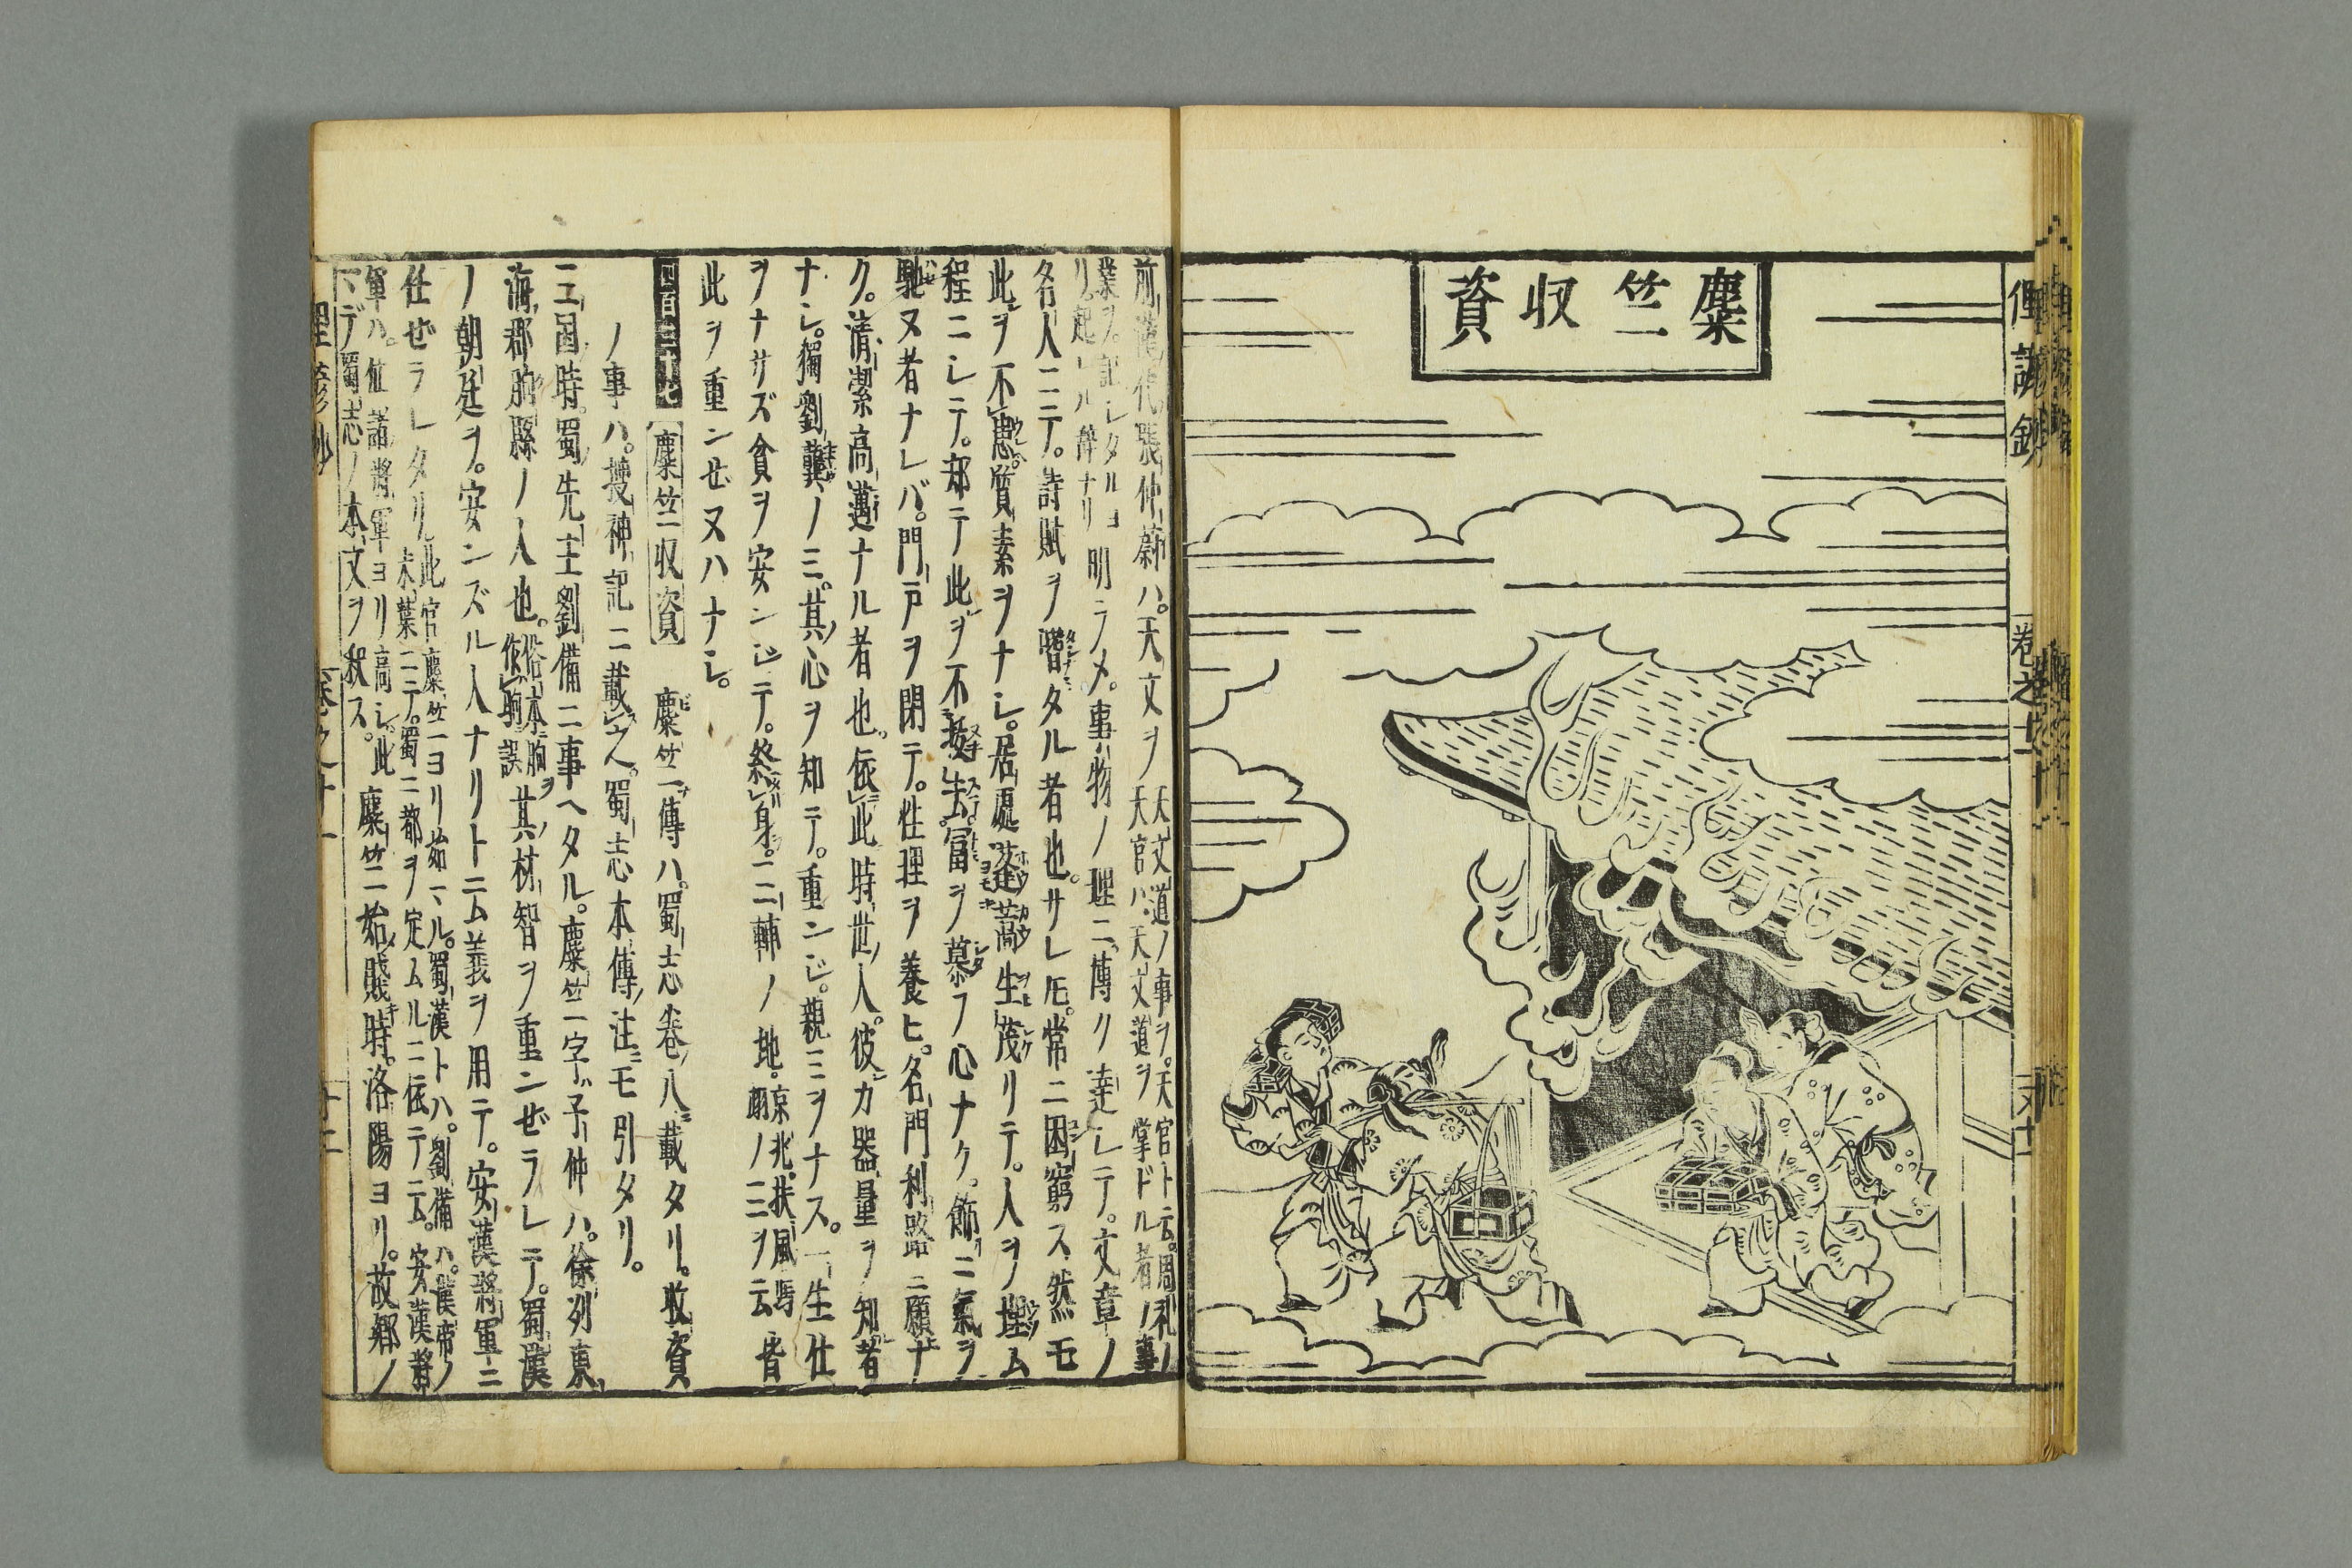 麋竺収資
俚諺鈔
卷之十一
前漢代張仲蔚ハ。天文ヲ
天文道ノ事ヲ。天官ト云。周礼ノ
天官ハ。天文道ヲ掌ドル者ノ事
業ヲ。記シタルヨ
リ。起レル辞ナリ
明ラメ。事物ノ理ニ傳ク達シテ。文章ノ
名人ニテ。詩賦ヲ嗜タル者也。サレ𪜈。常ニ困窮ス。然モ
此ヲ不患。質素ヲナシ。居處蓬蒿生茂リテ。人ヲ埋ム
程ニシテ。却テ此ヲ不拔去。冨ヲ慕フ心ナク。飾ニ氣ヲ
馳ヌ者ナレバ。門戸ヲ閉テ。性理ヲ養ヒ。名門利路ニ願ナ
ク。清潔高邁ナル者也。依此時世人。彼カ器量ヲ知者
ナシ。獨劉龔ノミ。其心ヲ知テ。重ンジ。親ミヲナス。一生仕
ヲナサズ貧ヲ安ンジテ。終身。三輔ノ地。
京兆。扶風。馮
翊ノ三ヲ云
皆
此ヲ重ンセヌハナシ。
麋竺収資
麋竺傳ハ。蜀志卷八載タリ。收資
ノ事ハ。搜神記ニ載之。蜀志本傳注ニモ引タリ。
三國時。蜀先主劉備ニ事ヘタル。麋竺字子仲ハ。徐列東
海郡朐縣ノ人也。
俗本朐ヲ
作駒誤
其材智ヲ重ンゼラレテ。蜀漢
ノ朝廷ヲ。安ンズル人ナリト云義ヲ用テ。安漢將軍ニ
任ゼラレタリ
此官麋竺ヨリ始マル。蜀漢トハ。劉備ハ。漢帝ノ
末葉ニテ。蜀ニ都ヲ定ムルニ依テ云。安漢將
軍ハ。位諸將軍ヨリ高シ。此
下デ蜀志ノ本文ヲ釈ス。
麋竺始賤時。洛陽ヨリ。故郷ノ
俚諺鈔
卷之十一
十二